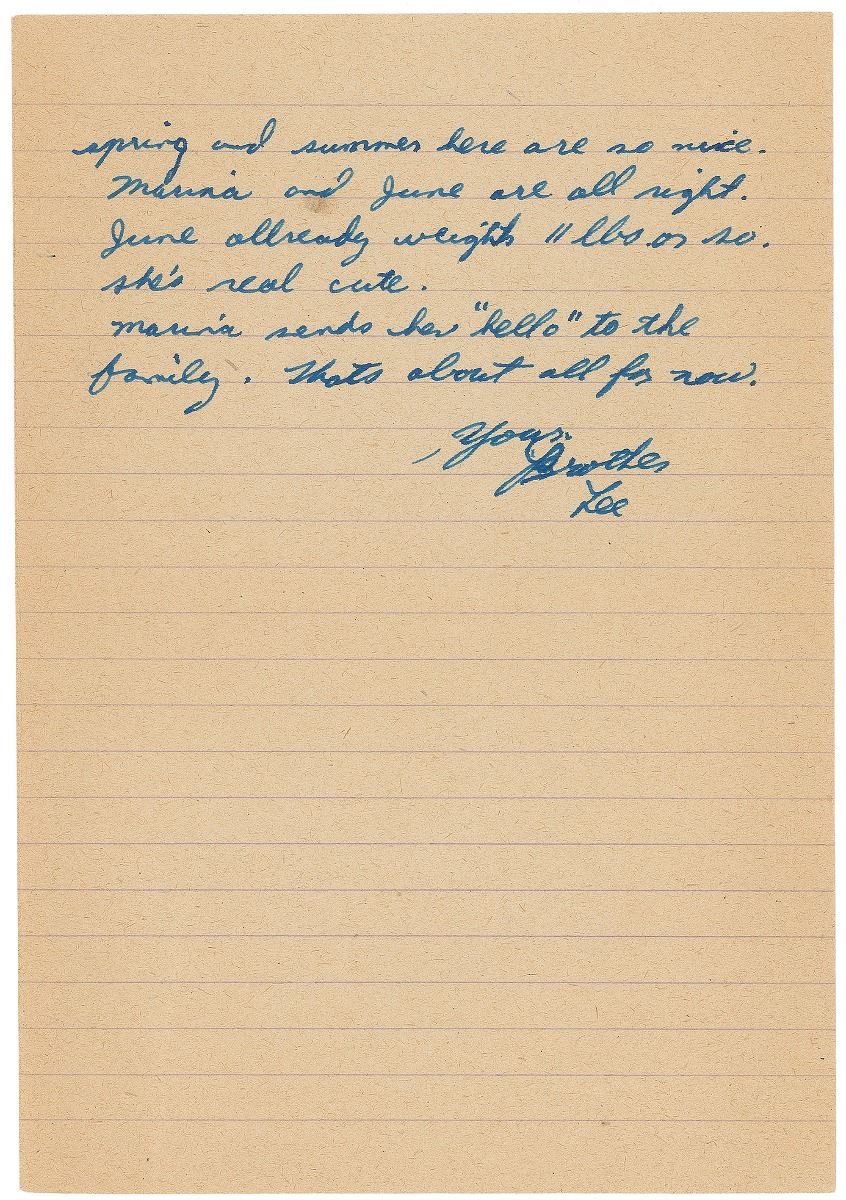 spring and summer here are so nice.
Marina and June are all right.
June allready weights 11 lbs. or so.
she's real cute.
Marina sends her "hello" to the
family. Thats about all for now.
Your
Brother
Lee